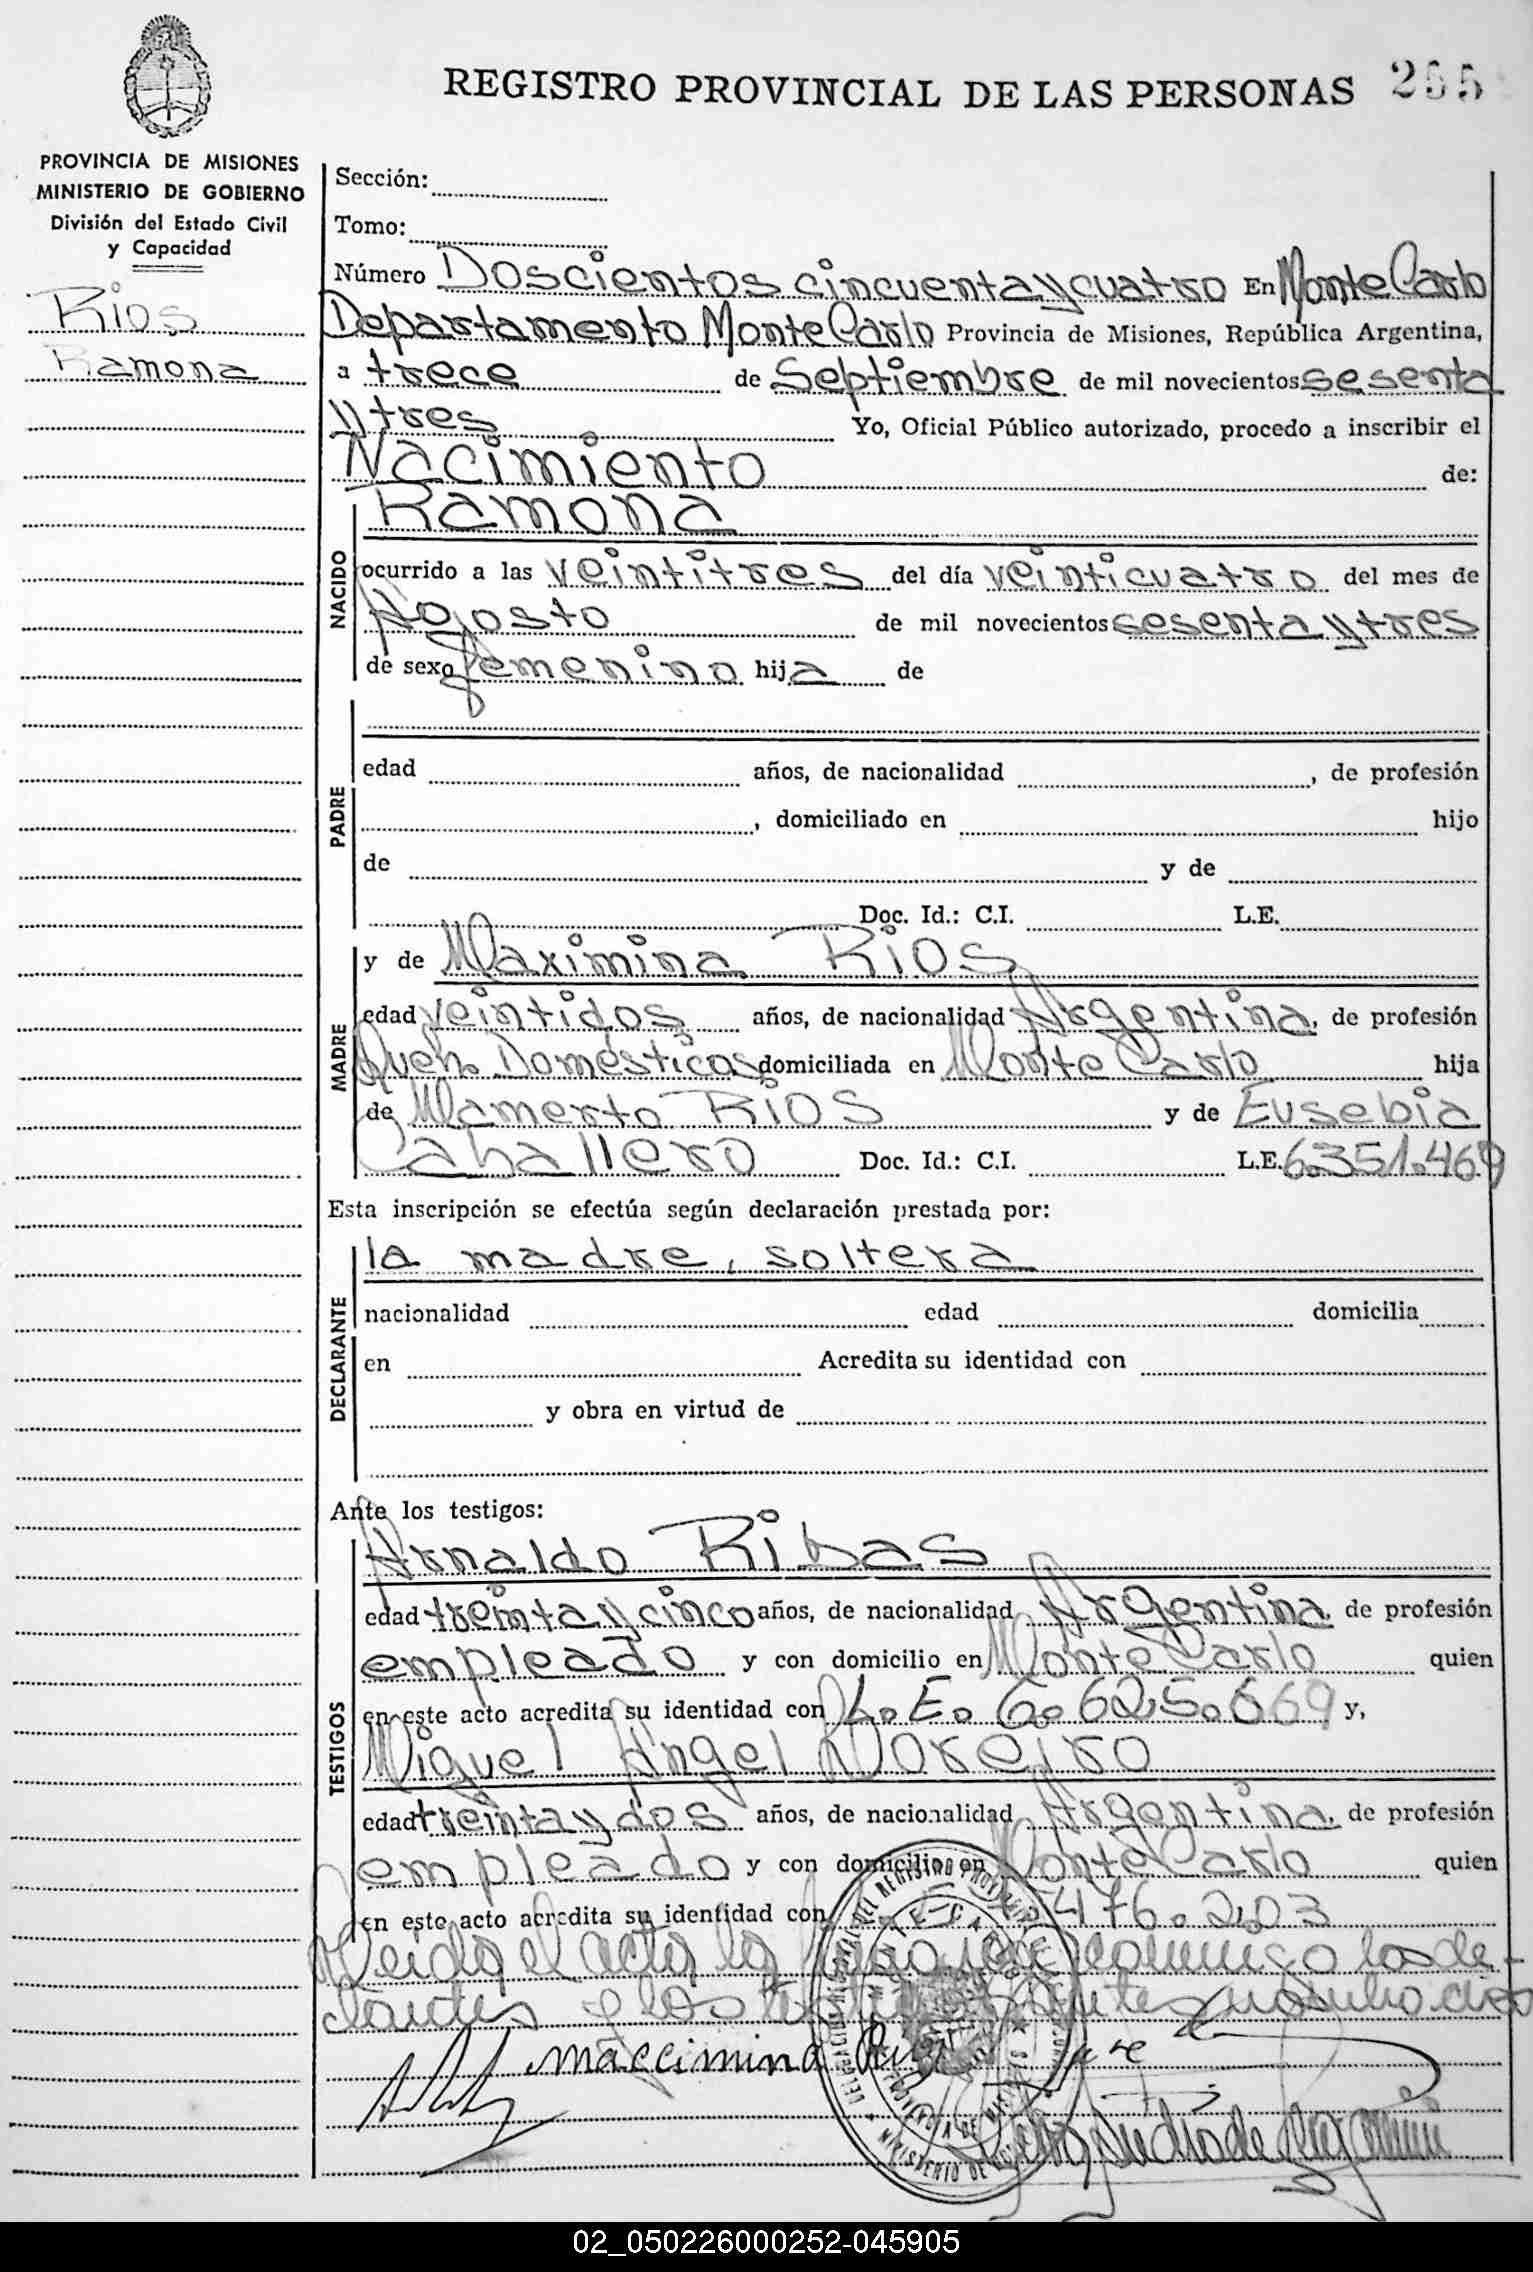 REGISTRO PROVINCIAL DE LAS PERSONAS 255
PROVINCIA DE MISIONES
MINISTERIO DE GOBIERNO
División del Estado Civil
y Capacidad
Rios
Ramona
Sección:
Tomo:
Número Doscientos cincuenta y cuatro En Monte Carlo
Departamento Monte Carlo Provincia de Misiones, República Argentina,
a trece de Septiembre de mil novecientos sesenta
y tres Yo, Oficial Público autorizado, procedo a inscribir el
Nacimiento de:
NACIDO
Ramona
ocurrido a las veintitres del día veinticuatro del mes de
Agosto de mil novecientos sesenta y tres
de sexo femenino hija de
PADRE
edad años, de nacionalidad , de profesión
, domiciliado en hijo
de y de
Doc. Id.: C.I. L.E.
MADRE
y de Maximina Rios
edad veintidos años, de nacionalidad Argentina, de profesión
Queh. Domésticos domiciliada en Monte Carlo hija
de Mamerto Rios y de Eusebia
Caballero Doc. Id.: C.I. L.E. 6.351.469
Esta inscripción se efectúa según declaración prestada por:
DECLARANTE
la madre, soltera
nacionalidad edad domicilia
en Acredita su identidad con
y obra en virtud de
Ante los testigos:
TESTIGOS
Arnaldo Ribas
edad treinta y cinco años, de nacionalidad Argentina, de profesión
empleado y con domicilio en Monte Carlo quien
en este acto acredita su identidad con L.E. 6.625.669 y,
Miguel Angel Doreiro
edad treinta y dos años, de nacionalidad Argentina, de profesión
empleado y con domicilio en Monte Carlo quien
en este acto acredita su identidad con 476.203
Leida el acta la conmigo los de-
clarantes y los
maccimina
02_050226000252-045905